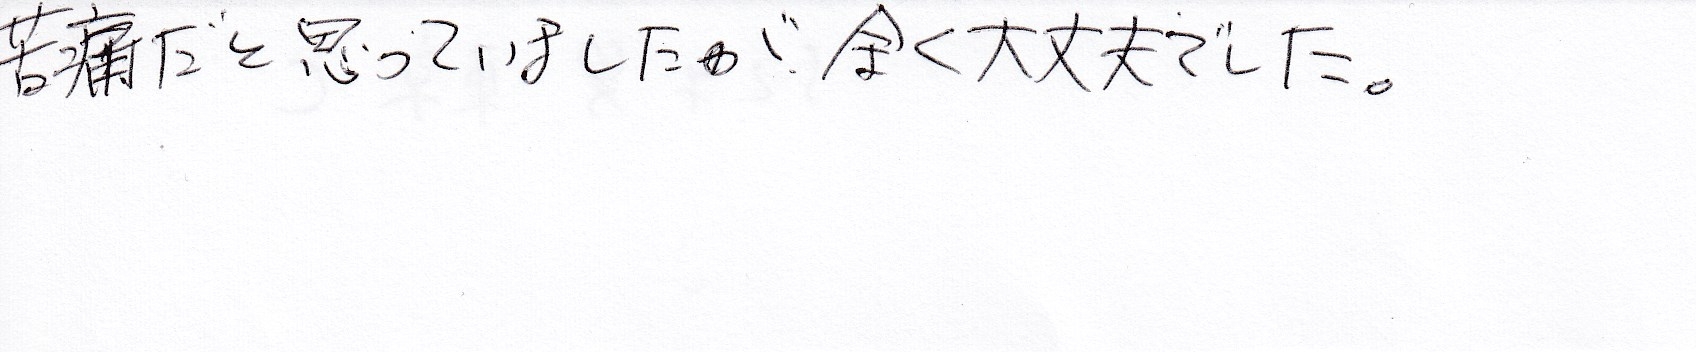 苦痛だと思っていましたが全く大丈夫でした。